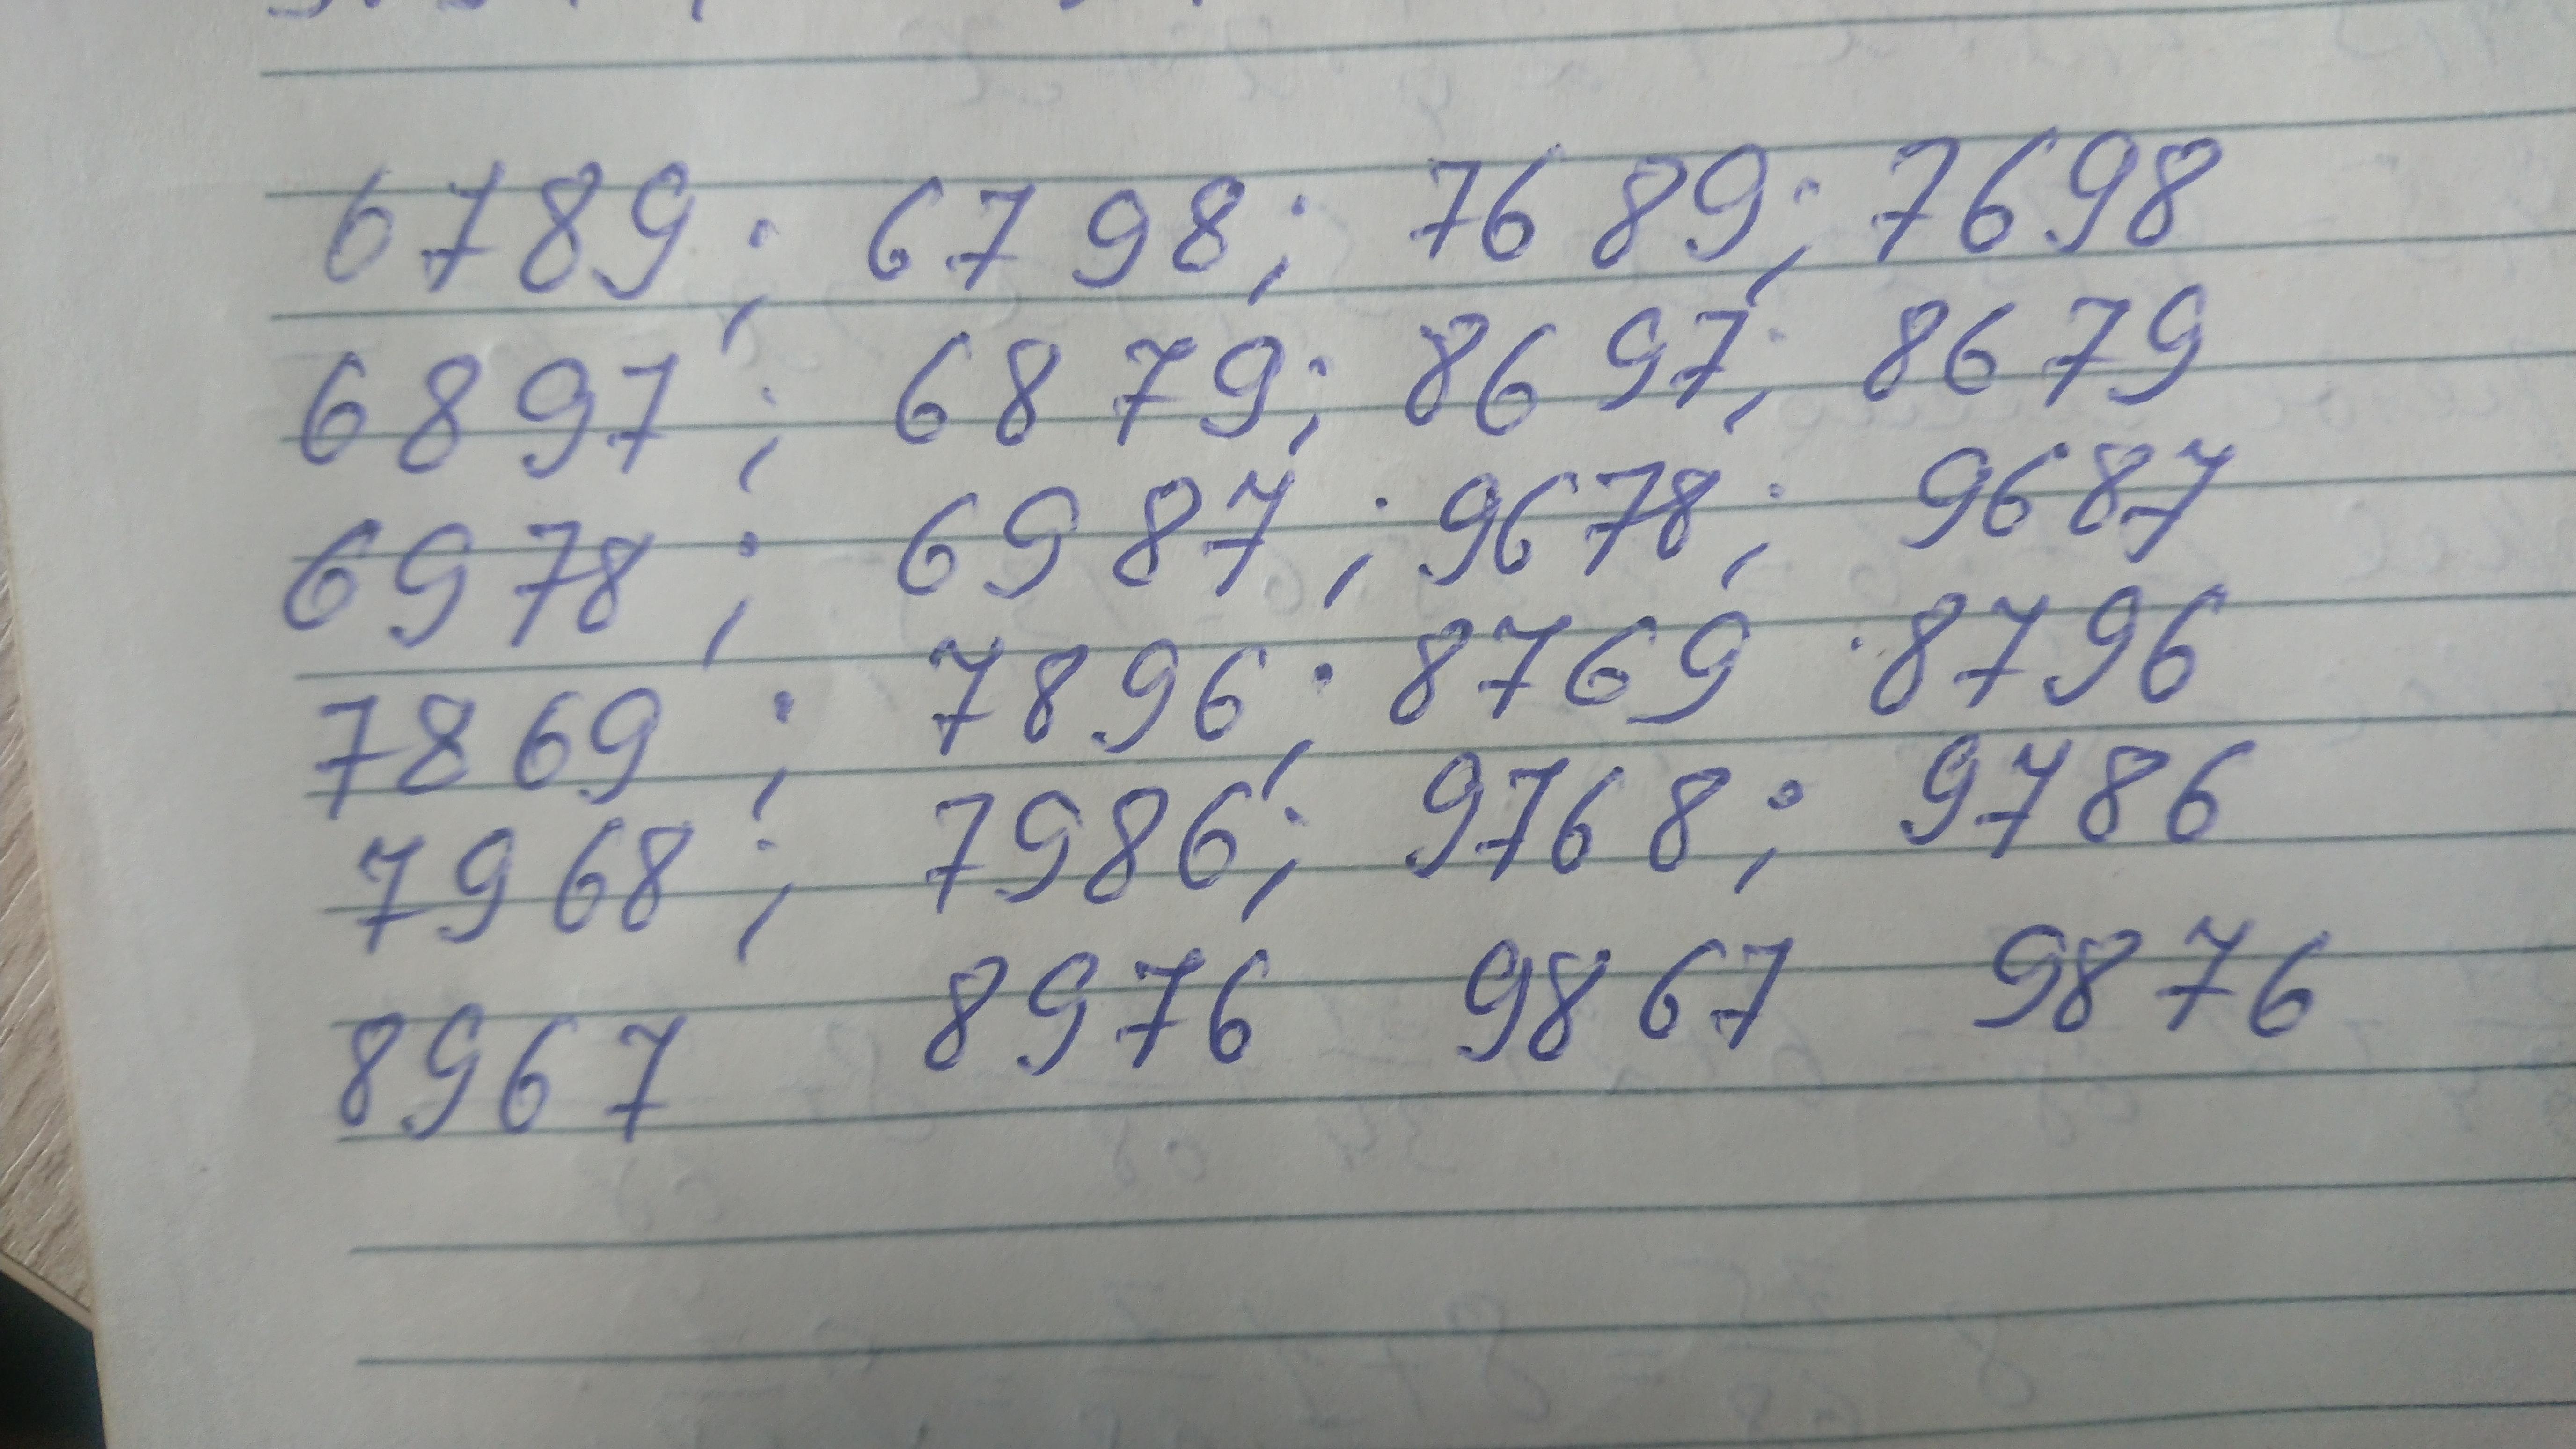 6789; 6798; 7689; 7698
6897; 6879; 8697; 8679
6978; 6987; 9678; 9687
7869; 7896; 8769 8796
7968; 7986; 9768; 9786
8967 8976 9867 9876